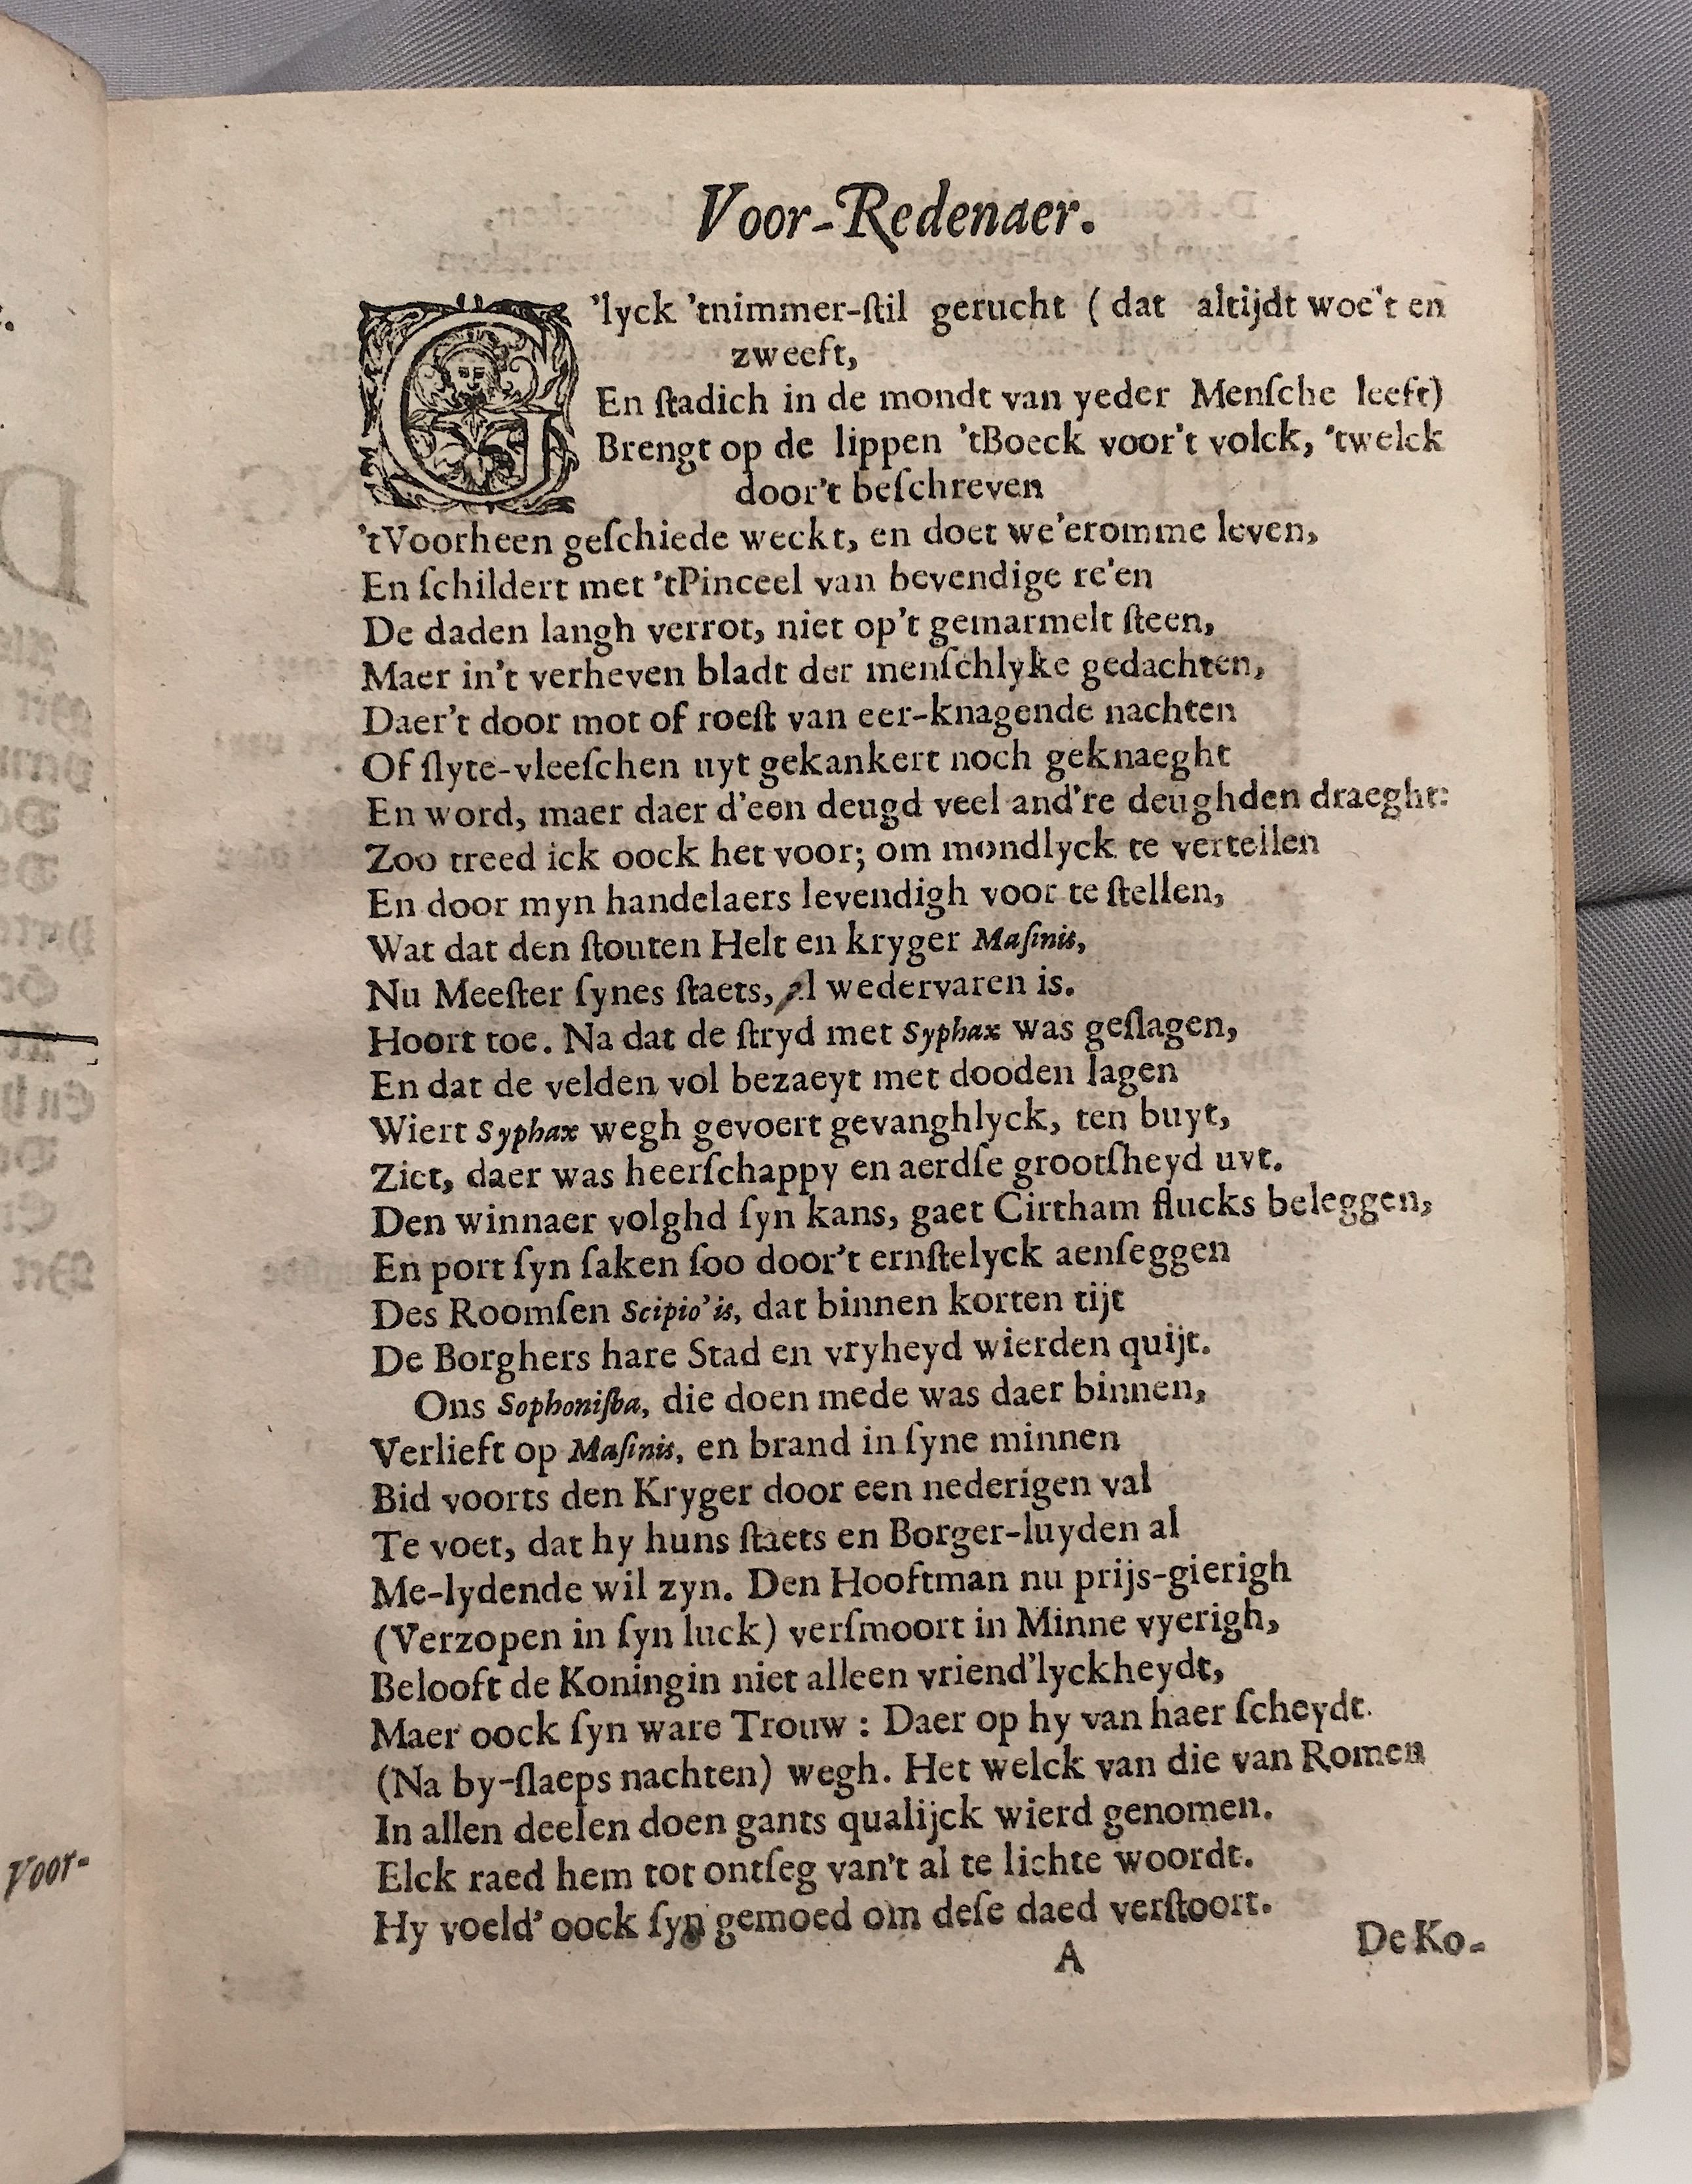 Voor-Redenaer.
G'lyck 'tnimmer-ſtil gerucht ( dat altijdt woe't en
zweeft,
En ſtadich in de mondt van yeder Menſche leeft)
Brengt op de lippen 'tBoeck voor't volck, 'twelck
door't beſchreven
'tVoorheen geſchiede weckt, en doet we'eromme leven,
En ſchildert met 'tPinceel van bevendige re'en
De daden langh verrot, niet op't gemarmelt ſteen,
Maer in't verheven bladt der menſchlyke gedachten,
Daer't door mot of roeſt van eer-knagende nachten
Of ſlyte-vleeſchen uyt gekankert noch geknaeght
En word, maer daer d'een deugd veel and're deughden draeght:
Zoo treed ick oock het voor; om mondlyck te vertellen
En door myn handelaers levendigh voor te ſtellen,
Wat dat den ſtouten Helt en kryger Maſinis,
Nu Meeſter ſynes ſtaets, al wedervaren is.
Hoort toe. Na dat de ſtryd met Syphax was geſlagen,
En dat de velden vol bezaeyt met dooden lagen
Wiert Syphax wegh gevoert gevanghlyck, ten buyt,
Ziet, daer was heerſchappy en aerdſe grootſheyd uvt.
Den winnaer volghd ſyn kans, gaet Cirtham flucks beleggen,
En port ſyn ſaken ſoo door't ernſtelyck aenſeggen
Des Roomſen Scipio'is, dat binnen korten tijt
De Borghers hare Stad en vryheyd wierden quijt.
Ons Sophoniſba, die doen mede was daer binnen,
Verlieft op Maſinis, en brand in ſyne minnen
Bid voorts den Kryger door een nederigen val
Te voet, dat hy huns ſtaets en Borger-luyden al
Me-lydende wil zyn. Den Hooftman nu prijs-gierigh
(Verzopen in ſyn luck) verſmoort in Minne vyerigh,
Belooft de Koningin niet alleen vriend'lyckheydt,
Maer oock ſyn ware Trouw : Daer op hy van haer ſcheydt.
(Na by-ſlaeps nachten) wegh. Het welck van die van Romen
In allen deelen doen gants qualijck wierd genomen.
Elck raed hem tot ontſeg van't al te lichte woordt.
Hy voeld' oock ſyn gemoed om deſe daed verſtoort.
A
De Ko-
Voor-